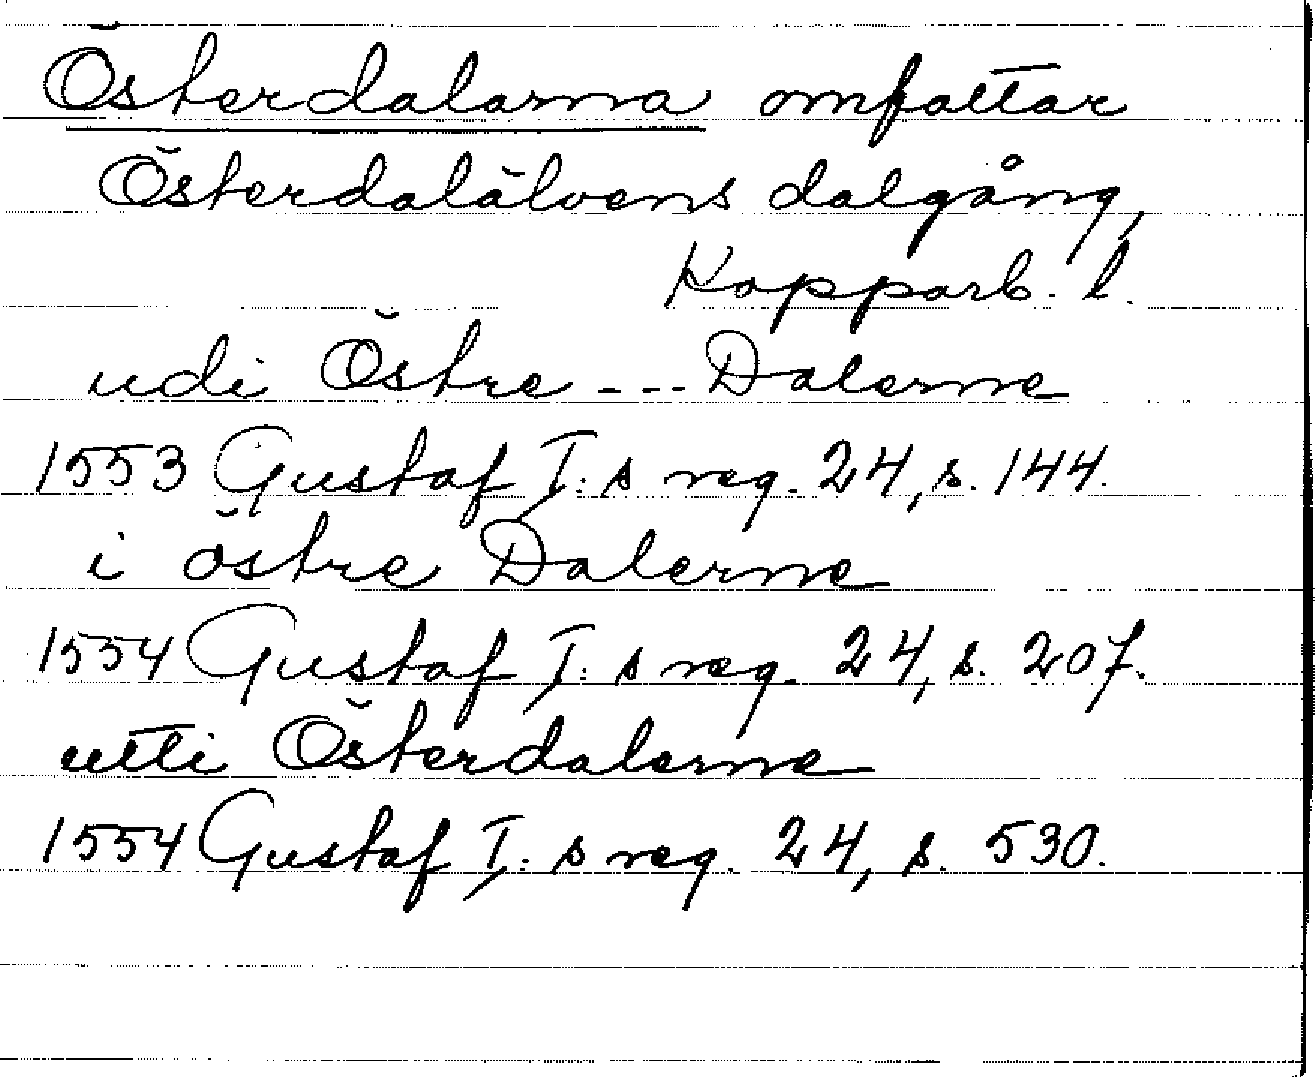 Österdalarna omfattar
Österdalälvens dalgång,
Kopparb. l.
udi Östre --- Dalerne
1553 Gustaf I:s reg. 24, s. 144.
i östre Dalerne
1554 Gustaf I:s reg. 24, s. 207.
utti Österdalerne
1554 Gustaf I:s reg. 24, s. 530.